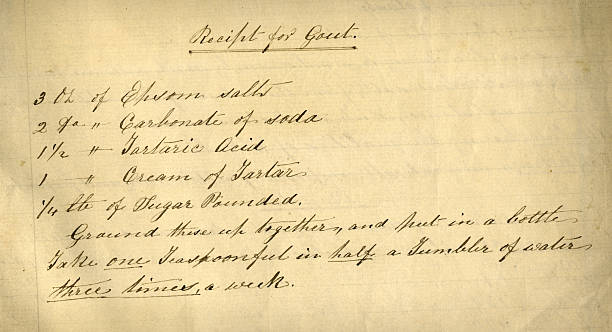 Recipt for Gout.
3 Oz of Epsom salts
2 Do " Carbonate of soda
1 1/2 " Tartaric Acid
1 " Cream of Tartar
1/4 lb of Sugar Pounded.
Ground these up together, and put in a bottle
Take one Teaspoonful in half a Tumbler of water
three times, a week.